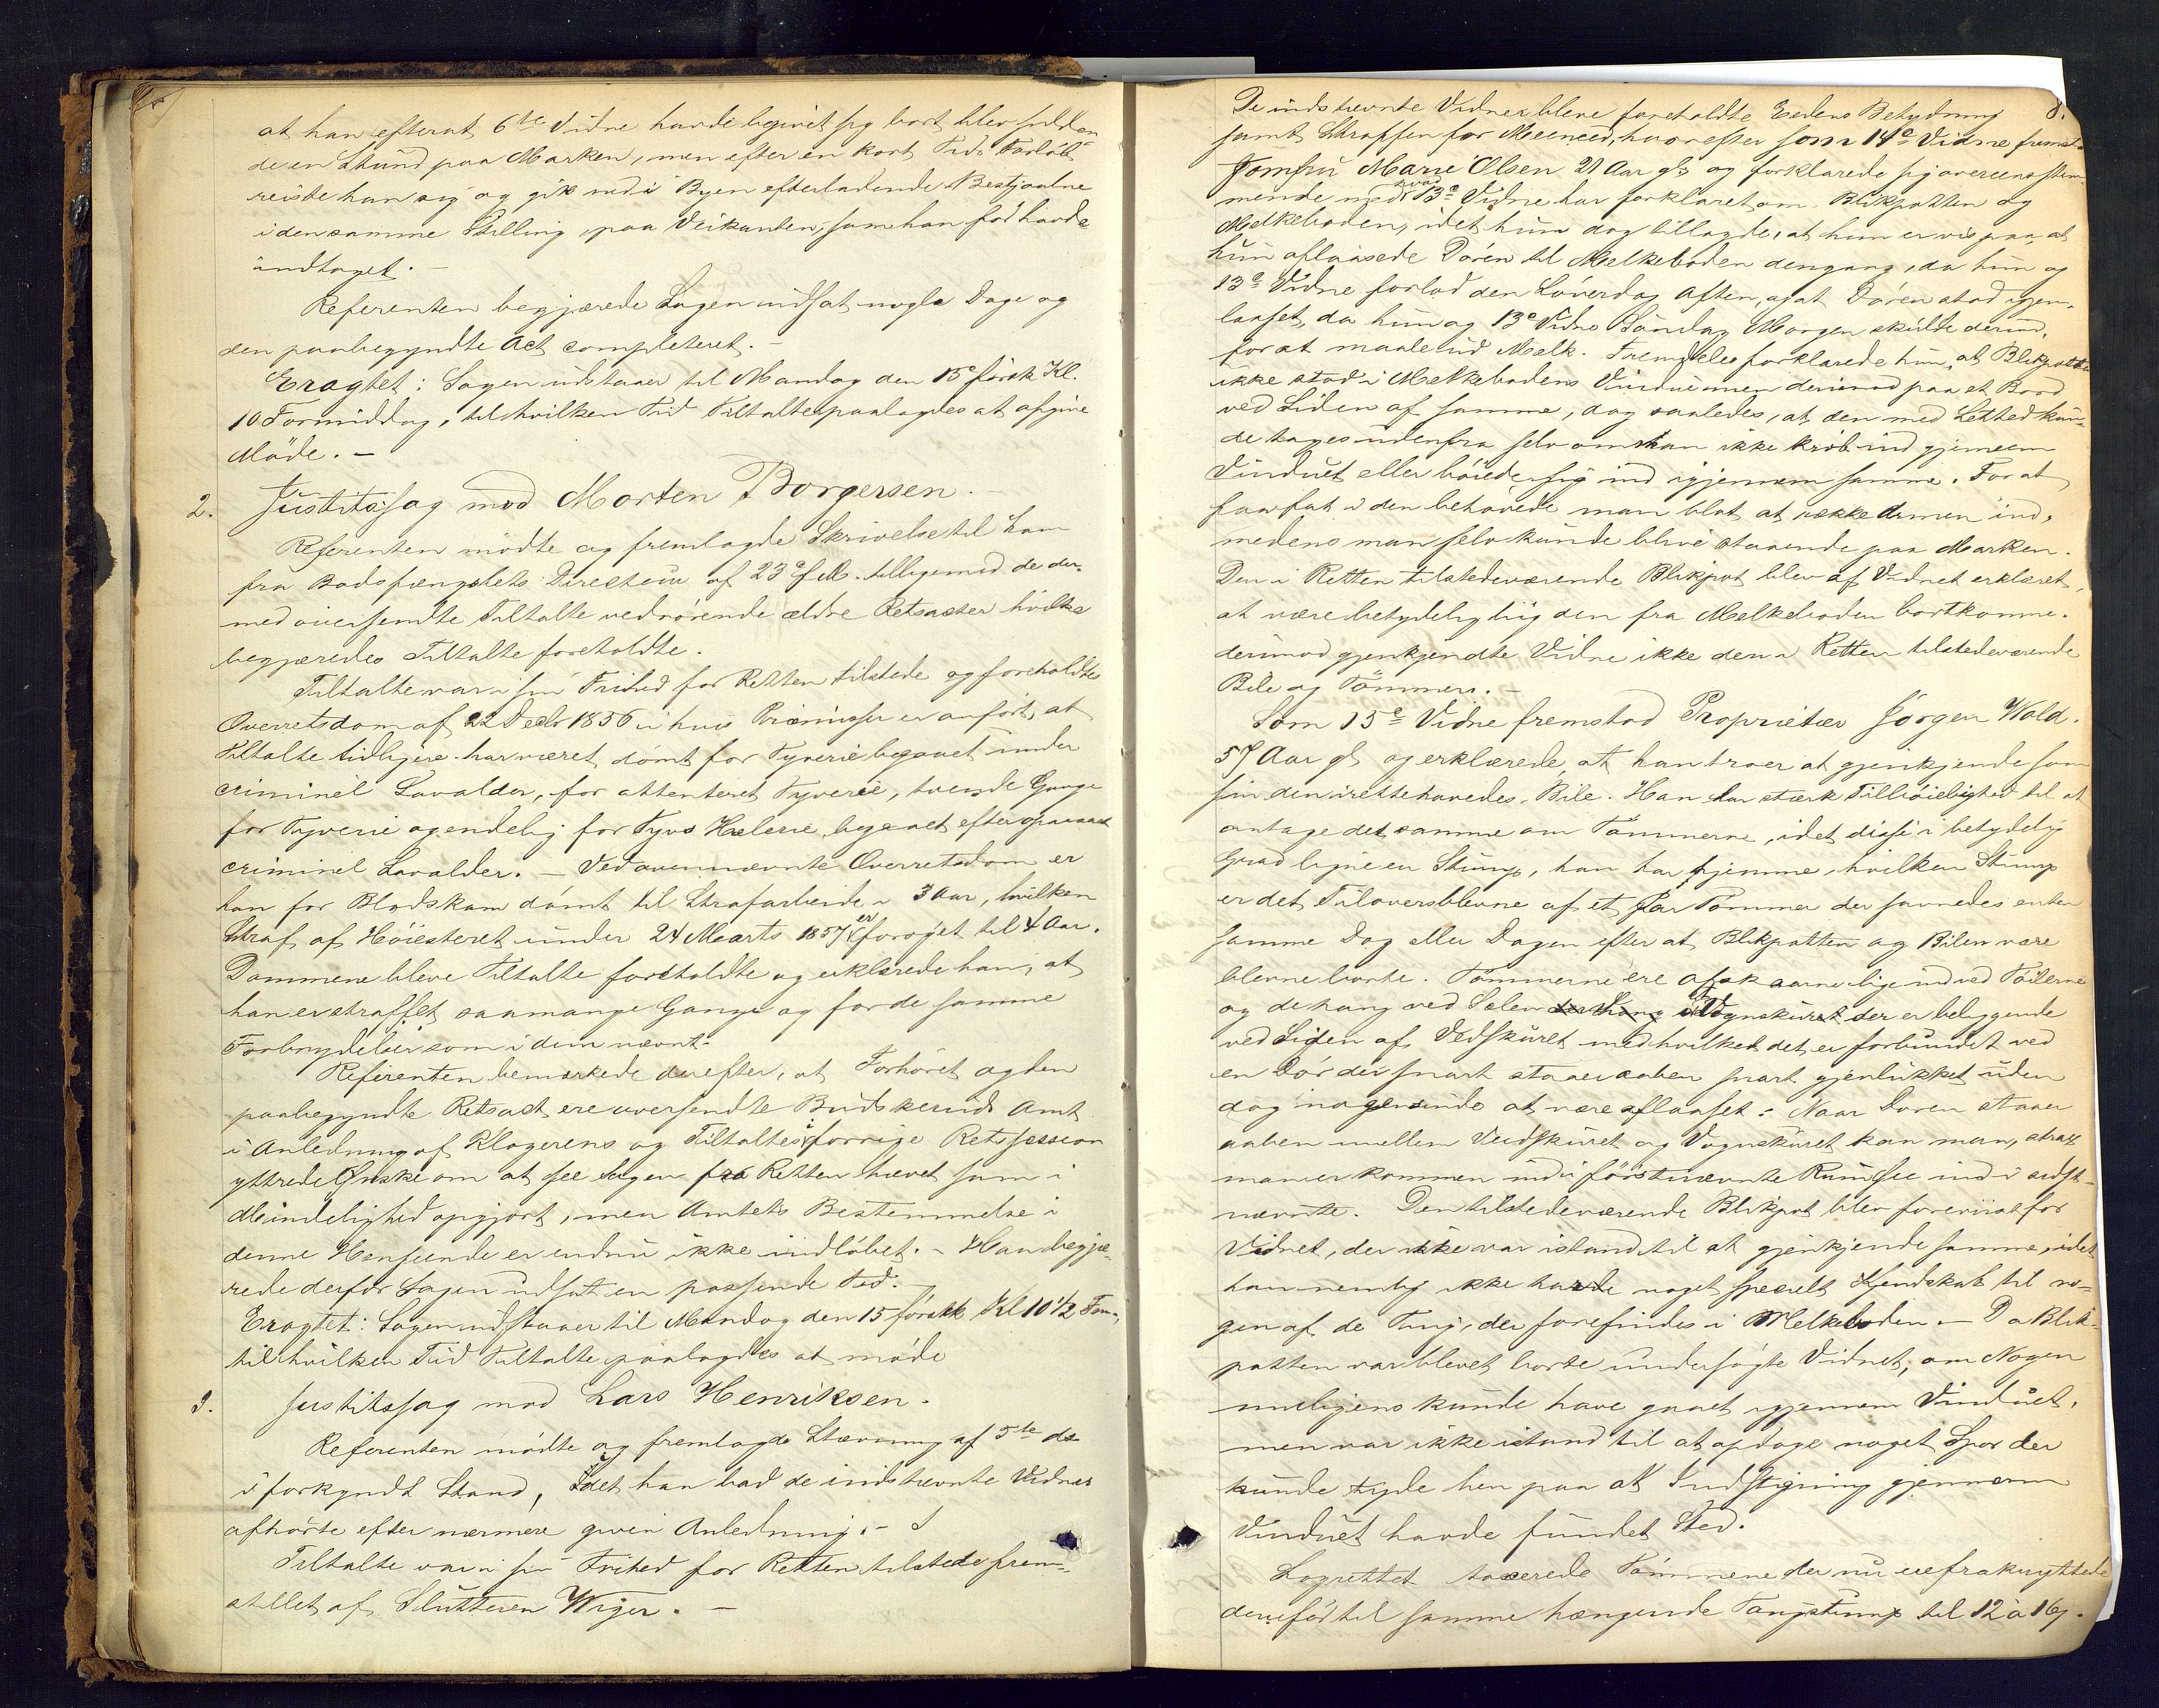 at han efterat 6te Vidne havde begivet sig bort blev sidden-
de en Stund paa Marken, men efter en kort Tids Forløb
reiste han sig og gik ned i Byen efterladende Bestjaalne
i den samme Stilling, paa Veikanten, som han før havde
indtaget. –
Referenten begjærede Sagen udsat nogle Dage og
den paabegyndte Act completeret. –
Eragtet: Sagen udstaaer til Mandag den 15de førstk. Kl.
10 Formiddag, til hvilken Tid Tiltalte paalagdes at afgive
Møde. –
2. Justitssag mod Morten Borgersen. –
Referenten mødte og fremlagde Skrivelse til ham
fra Bodsfængslets Directeur af 23de f. M. tilligemed de der-
med oversendte Tiltalte vedrørende ældre Retsacter hvilke
begjæredes Tiltalte foreholdte.
Tiltalte var i sin Frihed for Retten tilstede og foreholdtes
Overretsdom af 22 Decbr 1856 i hvis Præmisser er anført, at
Tiltalte tidligere har været dømt for Tyverie begaaet under
criminel Lavalder, for attenteret Tyverie, tvende Gange
for Tyverie og endelig for Tyvs Hælerie begaaet efter opnaaet
criminel Lavalder. – Ved ovennævnte Overretsdom er
han for Blodskam dømt til Strafarbeide i 3 Aar, hvilken
Straf af Høiesteret under 24 Marts 1857 er forøget til 4 Aar.
Dommene bleve Tiltalte foreholdte og erklærede han, at
han er straffet saamange Gange og for de samme
Forbrydelser som i dem nævnt.
Referenten bemærkede derefter, at Forhøret og den
paabegyndte Retsact ere oversendte Buskeruds Amt
i Anledning af Klagerens og Tiltaltes i forrige Retssession
yttrede Ønske om at see Sagen fra Retten hævet som i
Mindelighed opgjort, men Amtets Bestemmelse i
denne Henseende er endnu ikke indløbet. – Han begjæ-
rede derfor Sagen udsat en passende Tid. –
Eragtet: Sagen udstaaer til Mandag den 15 førstk. Kl 10 1/2 Form.,
til hvilken Tid Tiltalte paalagdes at møde
3. Justitssag mod Lars Henriksen.
Referenten mødte og fremlagde Stævning af 5te ds
i forkyndt Stand, idet han bad de indstævnte Vidner
afhørte efter nærmere given Anledning. –
Tiltalte var i sin Frihed for Retten tilstede frem-
stillet af Slutteren Wiger. –
8.
De indstævnte Vidner bleve foreholdte Eedens Betydning
samt Straffen for Meeneed, hvorefter som 14de Vidne fremstod
Jomfru Marie Olsen 21 Aar gl. og forklarede sig overeensstem-
mende med hvad 13de Vidne har forklaret om Blikpotten og
Melkeboden, idet hun dog tillagde, at hun er vis paa, at
hun aflaasede Døren til Melkeboden dengang, da hun og
13de Vidne forlod den Løverdag Aften, og at Døren stod igjen-
laaset, da hun og 13de Vidne Søndag Morgen skulde derind,
for at maale ud Melk. Fremdeles forklarede hun, at Blikpotten
ikke stod i Melkebodens Vindue men derimod paa et Bord
ved Siden af samme, dog saaledes, at den med Lethed kun-
de tages udenfra selv om man ikke krøb ind gjennem
Vinduet eller bøiede sig ind igjennem samme. For at
faae fat i den behøvede man blot at række Armen ind,
medens man selv kunde blive staaende paa Marken.
Den i Retten tilstedeværende Blikpot blev af Vidnet erklæret,
at være betydelig liig den fra Melkeboden bortkomne.
derimod gjenkjendte Vidne ikke den i Retten tilstedeværende
Bile og Tømmer. –
Som 15de Vidne fremstod Proprietær Jørgen Wold.
57 Aar gl. og erklærede, at han troer at gjenkjende som
sin den irettehavedes Bile. Han har stærk Tilbøielighed til at
antage det samme om Tømmerne, idet disse i betydelig
Grad ligne en Stump, han har hjemme, hvilken Stump
er det Tiloversblevne af et Par Tømmer der savnedes enten
samme Dag eller Dagen efter at Blikpotten og Bilen vare
blevne borte. Tømmerne ere afskaarne lige ind ved Tøilerne
og de hang ved Selen i et Vognskuret der er beliggende
ved Siden af Vedskuret med hvilket det er forbundet ved
en Dør der snart staaer aaben snart gjenlukket uden
dog nogensinde at være aflaaset. Naar Døren staaer
aaben mellem Vedskuret og Vognskuret kan man, strax
man er kommen ind i førstnævnte Rum see ind i sidst-
nævnte. Den tilstedeværende Blikpot blev foreviist for
Vidnet, der ikke var istand til at gjenkjende samme, idet
han nemlig ikke havde noget specielt Kjendskab til no-
gen af de Ting, der forefindes i Melkeboden. – Da Blik-
potten var blevet borte undersøgte Vidnet, om Nogen
muligens kunde have gaaet igjennem Vinduet,
men var ikke istand til at opdage noget Spor der
kunde tyde hen paa at Indstigning gjennem
Vinduet havde fundet Sted.
Lagrettet taxerede Tømmene der nu ere fraknyttede
den før til samme hængende Tougstump til 12 à 16 ʒ.